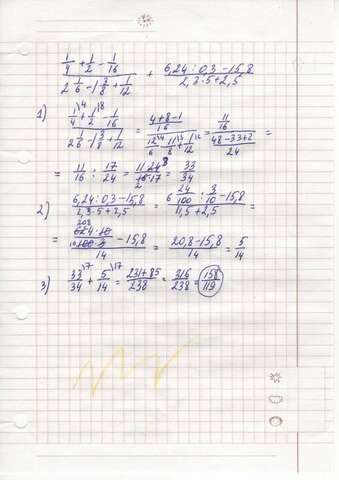 (1/4 + 1/2 - 1/16) / (2 1/6 - 1 3/8 + 1/12) + (6,24 : 0,3 - 15,8) / (2,3·5 + 2,5)
1) (1/4 \4 + 1/2 \8 - 1/16) / (2 1/6 - 1 3/8 + 1/12) = ((4+8-1)/16) / (12/6 \4 - 11/8 \3 + 1/12 \2) = (11/16) / ((48-33+2)/24) =
= 11/16 : 17/24 = (11·24 3)/(16 2·17) = 33/34
2) (6,24 : 0,3 - 15,8) / (2,3·5 + 2,5) = (6 24/100 : 3/10 - 15,8) / (11,5 + 2,5) =
= ((624 208·10)/(10 100·3) - 15,8) / 14 = (20,8 - 15,8)/14 = 5/14
3) 33/34 \7 + 5/14 \17 = (231+85)/238 = 316/238 = 158/119